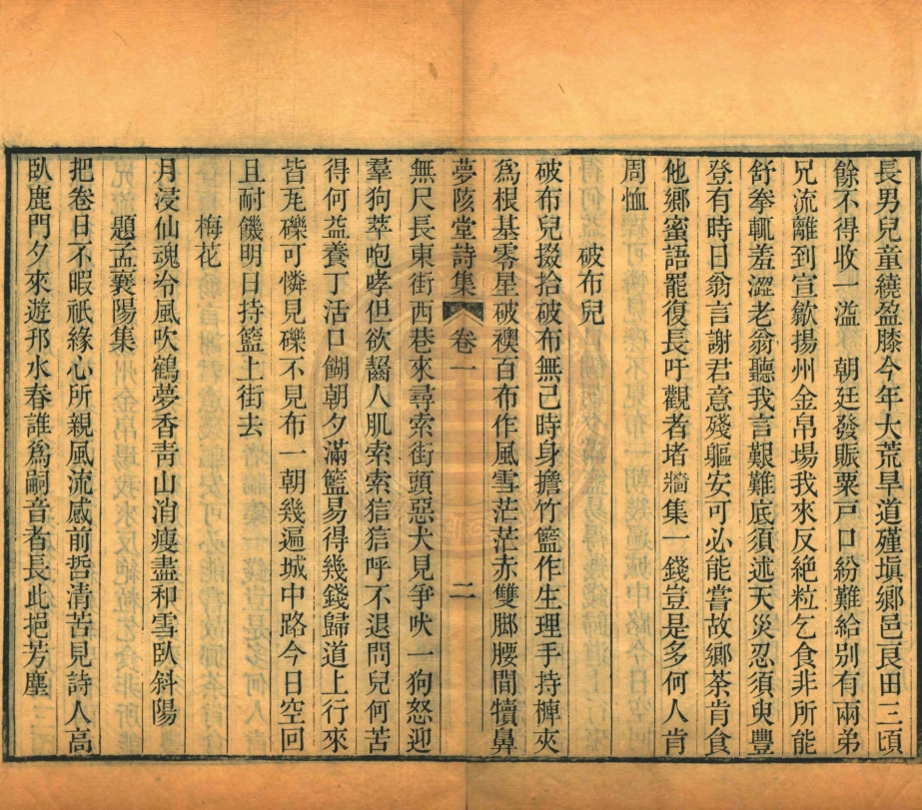 長男兒童繞盈膝今年大荒旱道殣塡鄉邑良田三頃
餘不得收一溢　朝廷發賑粟戸口紛難給別有兩弟
兄流離到宣歙揚州金帛場我來反絶粒乞食非所能
舒拳輒羞澀老翁聽我言艱難底須述天災忍須臾豐
登有時日翁言謝君意殘軀安可必能嘗故鄉茶肯食
他鄉蜜語罷復長吁觀者堵牆集一錢豈是多何人肯
周恤
破布兒
破布兒掇拾破布無已時身擔竹籃作生理手持椑夾
爲根基零星破襖百布作風雪茫茫赤雙脚腰間犢鼻
夢陔堂詩集　卷一　二
無尺長東街西巷來尋索街頭惡犬見爭吠一狗怒迎
羣狗萃咆哮但欲齧人肌索索狺狺呼不退問兒何苦
得何益養丁活口餬朝夕滿籃易得幾錢歸道上行來
皆瓦礫可憐見礫不見布一朝幾遍城中路今日空回
且耐饑明日持籃上街去
梅花
月浸仙魂冷風吹鶴夢香靑山消瘦盡和雪臥斜陽
題孟襄陽集
把卷日不暇祇緣心所親風流感前哲清苦見詩人高
臥鹿門夕來遊邗水春誰爲嗣音者長此挹芳塵